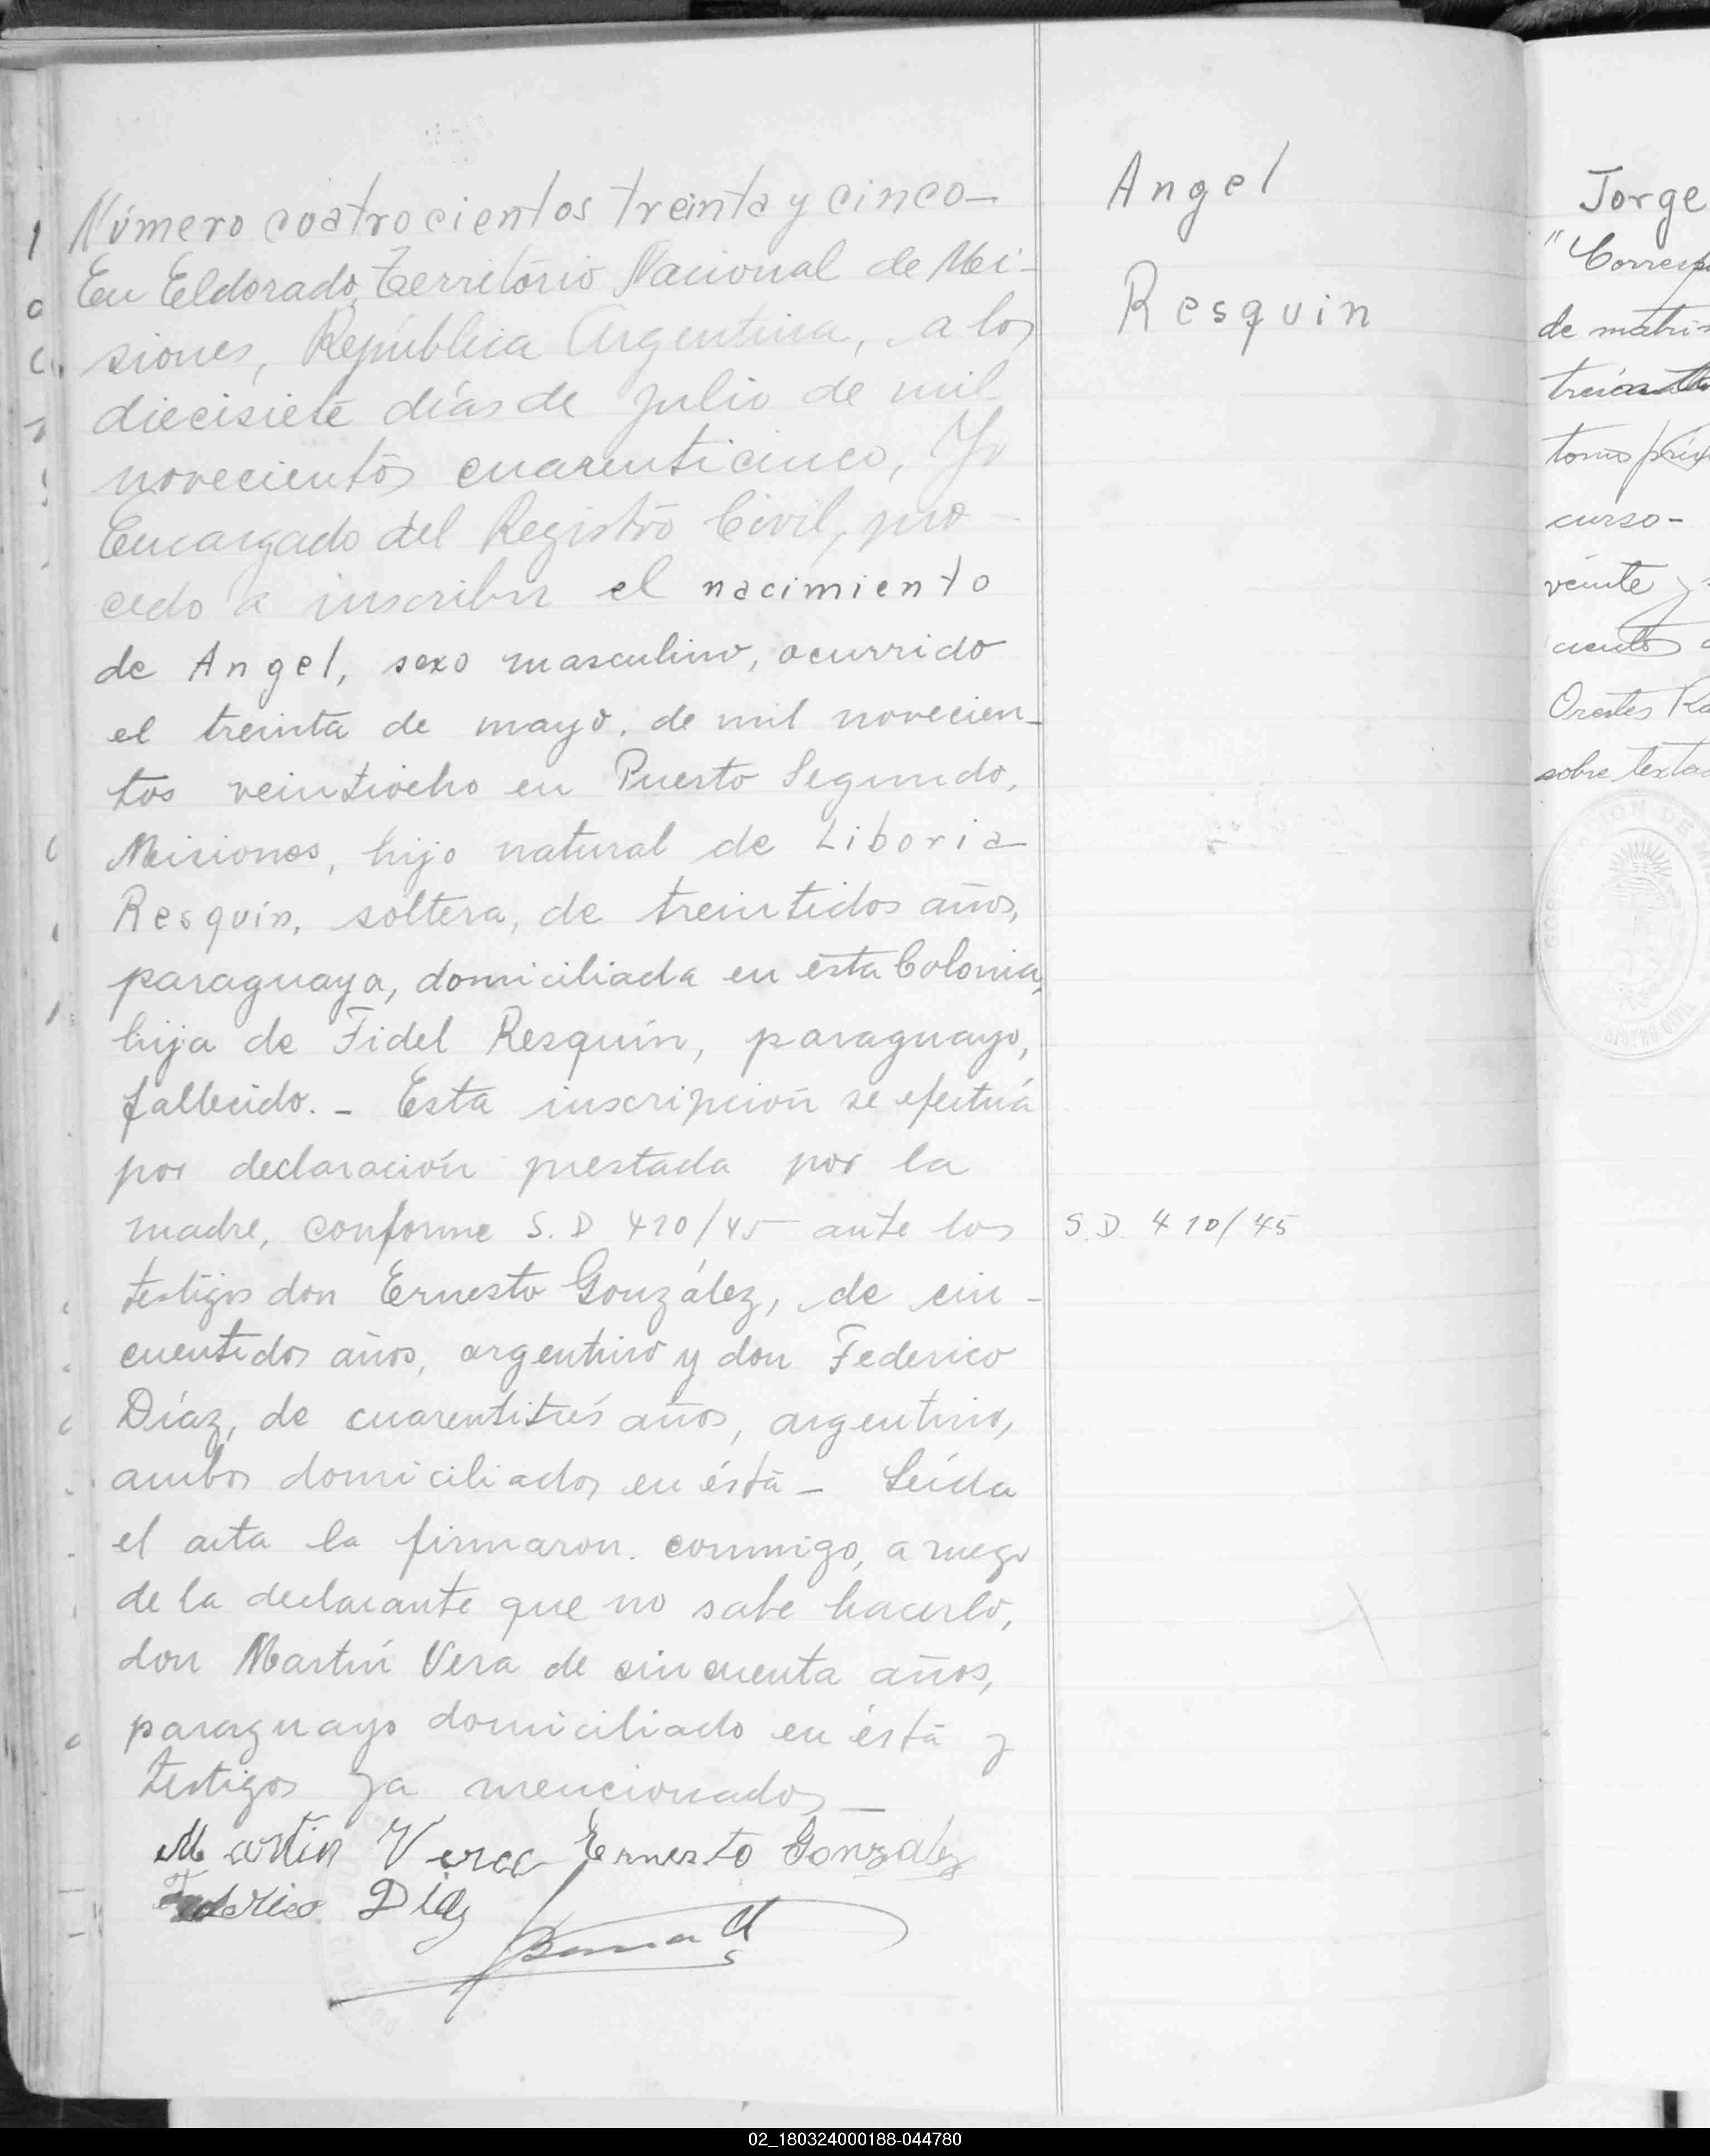 Número cuatrocientos treinta y cinco-
En Eldorado, Territorio Nacional de Mi-
siones, República Argentina, a los
diecisiete días de julio de mil
novecientos cuarenticinco, Yo
Encargado del Registro Civil, pro-
cedo a inscribir el nacimiento
de Angel, sexo masculino, ocurrido
el treinta de mayo, de mil novecien-
tos veintiocho en Puerto Segundo,
Misiones, hijo natural de Liboria
Resquín, soltera, de treintidos años,
paraguaya, domiciliada en esta Colonia,
hija de Fidel Resquín, paraguayo,
fallecido. - Esta inscripción se efectúa
por declaración prestada por la
madre, conforme S. D 410/45 ante los
testigos don Ernesto González, de cin-
cuentidos años, argentino y don Federico
Díaz, de cuarentitrés años, argentino,
ambos domiciliados en ésta - Leída
el acta la firmaron. conmigo, a ruego
de la declarante que no sabe hacerlo,
don Martín Vera de cincuenta años,
paraguayo domiciliado en ésta y
testigos ya mencionados -
Martin Vera Ernesto Gonzalez
Federico Diaz
Angel
Resquin
S. D. 410/45
Jorge
"Corresp
de matri
tomo
curso-
veinte y
ciento
Orestes
sobre textad
02_180324000188-044780